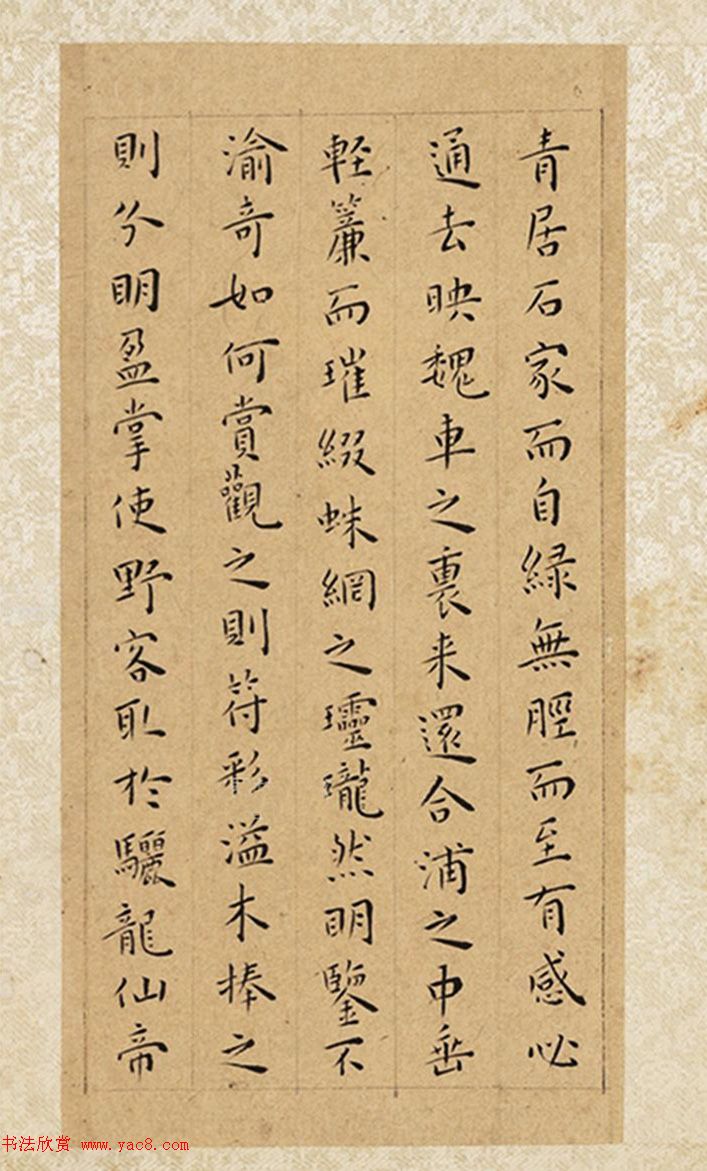 青居石家而自緑無脛而至有感必
通去映魏車之裏来還合浦之中垂
軽簾而璀綴蛛網之瓐瓏然明鑒不
渝奇如何賞觀之則符彩溢木捧之
則分明盈掌使野客取於驪龍仙帝
书法欣赏 www.yac8.com